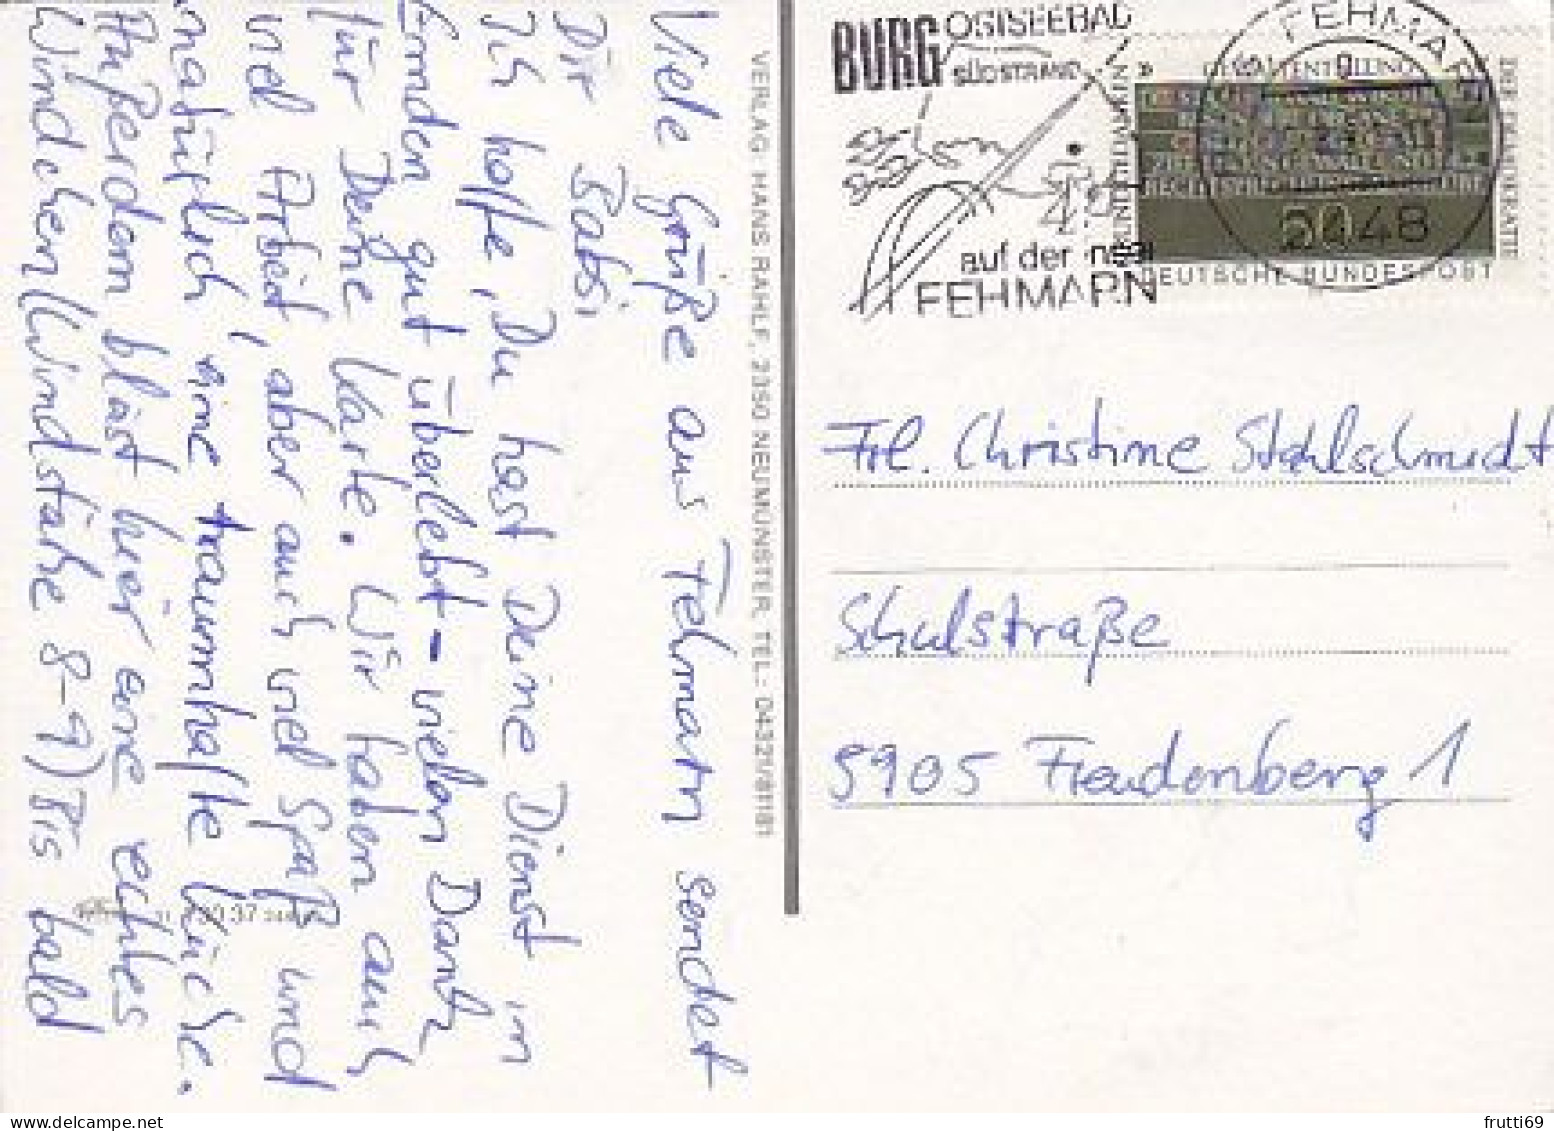 Viele Grüße aus Fehmarn sendet
Dir Babsi,
Ich hoffe, Du hast Deine Dienst im
Emden gut überlebt – vielen Dank
für Deine Karte. Wir haben auch
viel Arbeit, aber auch viel Spaß und
natürlich eine traumhafte Küche.
Außerdem bläst hier eine echtes
Windchen (Windstärke 8-9) Bis bald
VERLAG: HANS RAHLF, 2350 NEUMÜNSTER, TEL.: 04321/
BURG OSTSEEBAD
SÜDSTRAND
auf der Insel
FEHMARN
FEHMARN
2448
DER DEMOKRATIE
DEUTSCHE BUNDESPOST
Frl. Christine Stahlschmidt
Schulstraße
5905 Freudenberg 1
frutti69